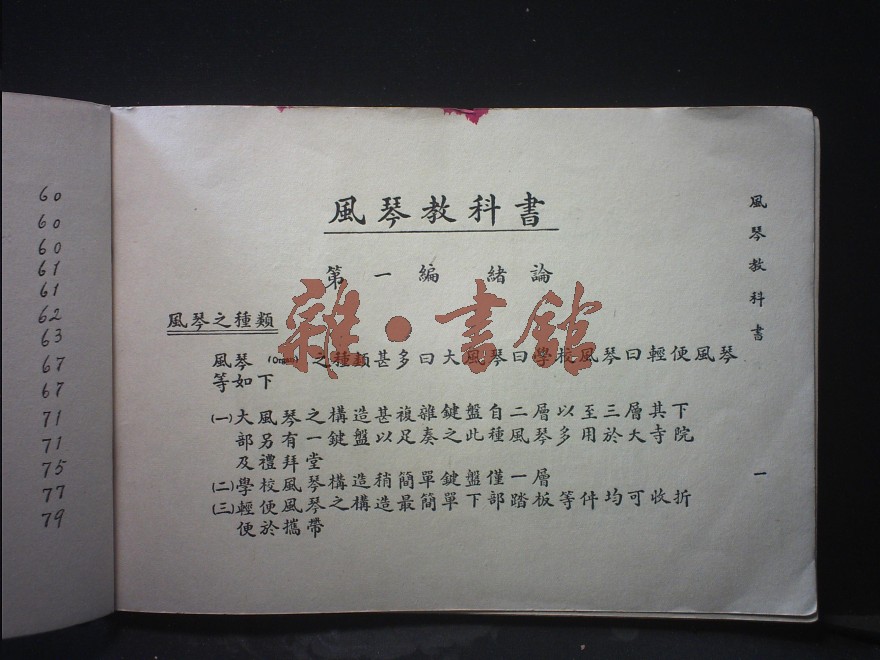 60
60
60
61
61
62
63
67
67
71
71
75
77
79
風琴教科書
第一編 緒論
風琴之種類
風琴(Organ)之種類甚多曰大風琴曰學校風琴曰輕便風琴
等如下
㈠大風琴之構造甚複雜鍵盤自二層以至三層其下
部另有一鍵盤以足奏之此種風琴多用於大寺院
及禮拜堂
㈡學校風琴構造稍簡單鍵盤僅一層
㈢輕便風琴之構造最簡單下部踏板等件均可收折
便於攜帶
風琴教科書
一
雜·書館